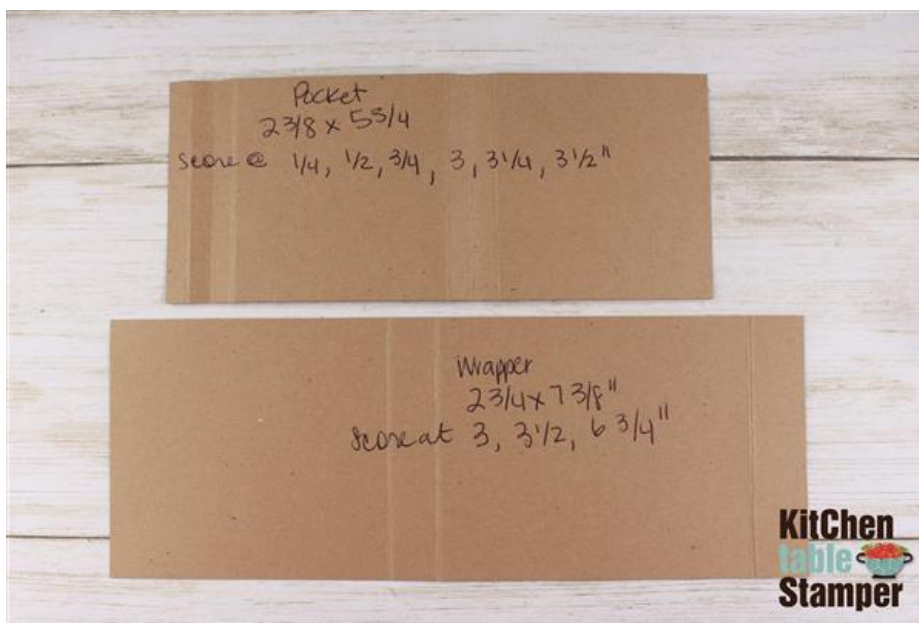 Pocket
2 3/8 x 5 3/4
Score @ 1/4, 1/2, 3/4, 3, 3 1/4, 3 1/2"
Wrapper
2 3/4 x 7 3/8"
Score at 3, 3 1/2, 6 3/4"
KitChen
table
Stamper